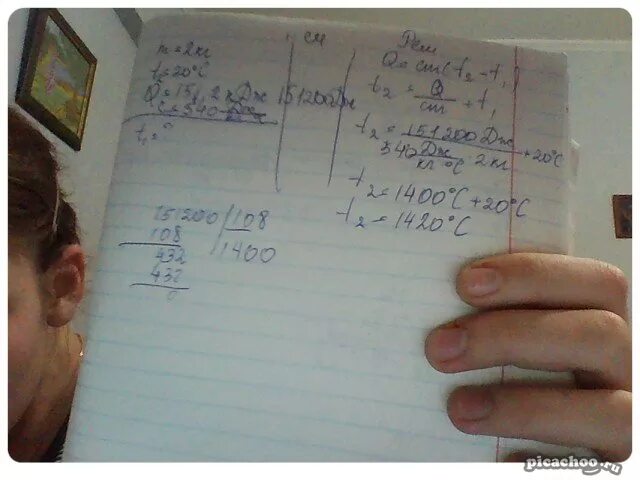 m = 2 кг
t = 20°C
Q = 151,2 кДж 151200Дж
C = 540 Дж
t₂ = °
си
Реш
Q = cm(t₂ - t₁)
t₂ = Q/cm + t₁
t₂ = 151200 Дж / 540 Дж/кг°C 2кг + 20°C
t₂ = 1400°C + 20°C
t₂ = 1420°C
151200 / 108
108 1400
432
432
0
picachoo.ru